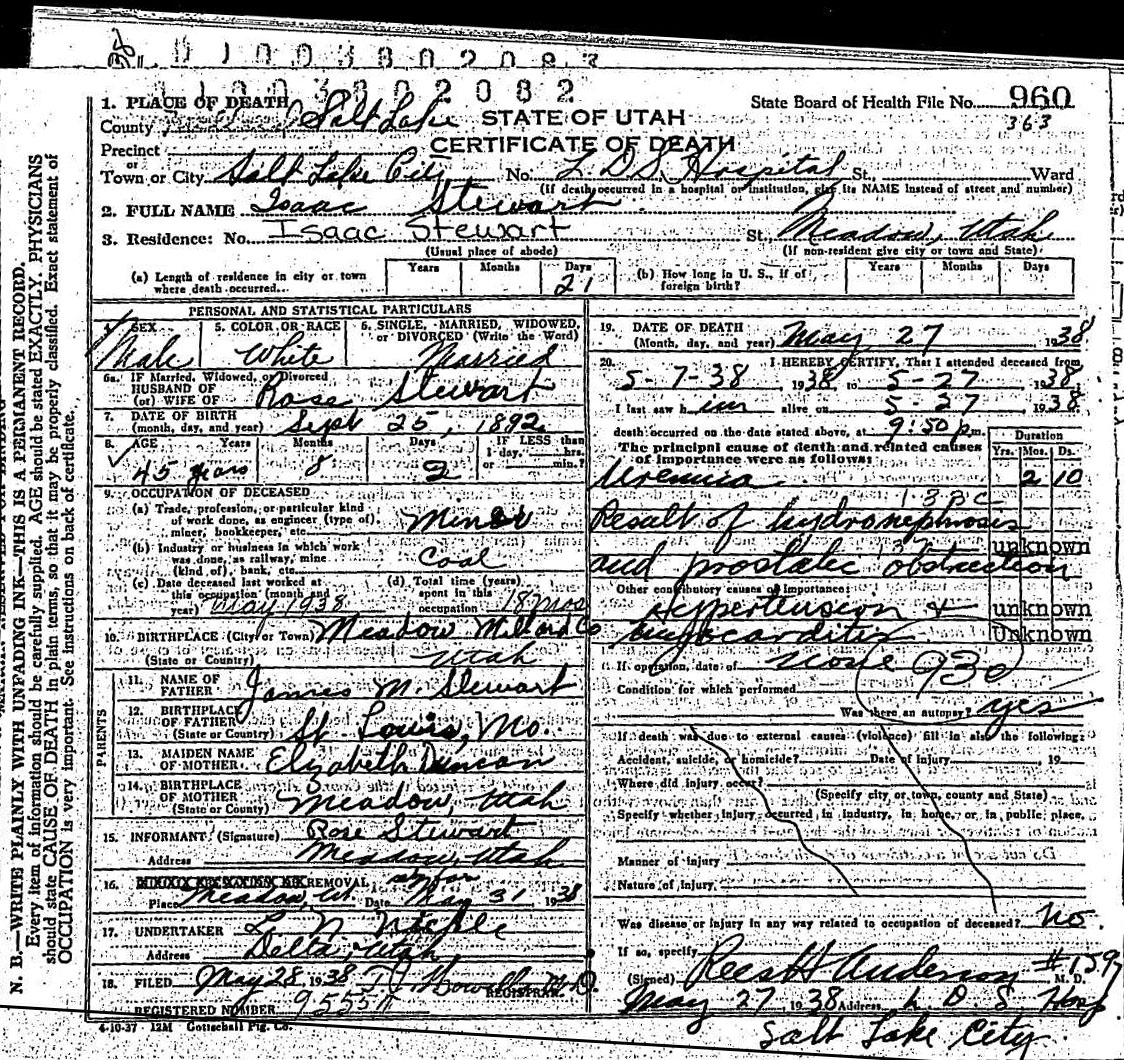 D 1 0 0 3 8 0 2 0 8 3
1 1 0 0 3 8 0 2 0 8 2
1. PLACE OF DEATH
County Salt Lake
STATE OF UTAH
CERTIFICATE OF DEATH
State Board of Health File No. 960
363
Precinct
or
Town or City Salt Lake City No. L. D. S. Hospital St., Ward
(If death occurred in a hospital or institution, give its NAME instead of street and number)
2. FULL NAME Isaac Stewart
3. Residence: No. Isaac Stewart St. Meadow, Utah
(Usual place of abode) (If non-resident give city or town and State)
(a) Length of residence in city or town where death occurred Years Months Days 21
(b) How long in U. S., if of foreign birth? Years Months Days
PERSONAL AND STATISTICAL PARTICULARS
4. SEX Male
5. COLOR OR RACE White
6. SINGLE, MARRIED, WIDOWED, or DIVORCED (Write the Word) Married
6a. IF Married, Widowed, or Divorced
HUSBAND OF
(or) WIFE OF Rose Stewart
7. DATE OF BIRTH
(month, day, and year) Sept 25, 1892
8. AGE Years Months Days IF LESS than
1 day, hrs.
or min.?
45 years 8 2
9. OCCUPATION OF DECEASED
(a) Trade, profession, or particular kind
of work done, as engineer (type of),
miner, bookkeeper, etc. Miner
(b) Industry or business in which work
was done, as railway, mine
(kind of), bank, etc. Coal
(c) Date deceased last worked at
this occupation (month and
year) May 1938
(d) Total time (years)
spent in this
occupation 18 mos
10. BIRTHPLACE (City or Town) Meadow Millard Co
(State or Country) Utah
PARENTS
11. NAME OF
FATHER James M. Stewart
12. BIRTHPLACE
OF FATHER
(State or Country) St. Louis, Mo.
13. MAIDEN NAME
OF MOTHER Elizabeth Duncan
14. BIRTHPLACE
OF MOTHER
(State or County) Meadow, Utah
15. INFORMANT (Signature) Rose Stewart
Address Meadow, Utah
16. REMOVAL
Place Meadow, Ut. Date May 31 1938
17. UNDERTAKER L. N.
Address Delta, Utah
18. FILED May 28, 1938 M.D.
REGISTRAR
REGISTERED NUMBER 9555
4-10-37 12M Gottschall Ptg. Co.
19. DATE OF DEATH
(Month, day, and year) May 27 1938
20. I HEREBY CERTIFY, That I attended deceased from
5-7-38, 1938, to 5-27, 1938,
I last saw him alive on 5-27, 1938
death occurred on the date stated above, at 9:50 p.m.
The principal cause of death and related causes
of importance were as follows:
Duration
Yrs. Mos. Ds.
Uremia 2 10
Result of hydronephrosis
and prostatic obstruction unknown
Other contributory causes of importance:
Hypertension + unknown
myocarditis Unknown
If operation, date of none 93c
Condition for which performed
Was there an autopsy? yes
If death was due to external causes (violence) fill in also the following:
Accident, suicide, or homicide? Date of Injury 19
Where did injury occur?
(Specify city or town, county and State)
Specify whether injury occurred in industry, in home, or in public place.
Manner of injury
Nature of injury
Was disease or injury in any way related to occupation of deceased? No.
If so, specify
(Signed) Rees H Anderson M. D.
May 27 1938 Address L. D. S Hosp
Salt Lake City
N. B.—WRITE PLAINLY WITH UNFADING INK—THIS IS A PERMANENT RECORD.
Every item of information should be carefully supplied. AGE should be stated EXACTLY. PHYSICIANS
should state CAUSE OF DEATH in plain terms, so that it may be properly classified. Exact statement of
OCCUPATION is very important. See instructions on back of certificate.